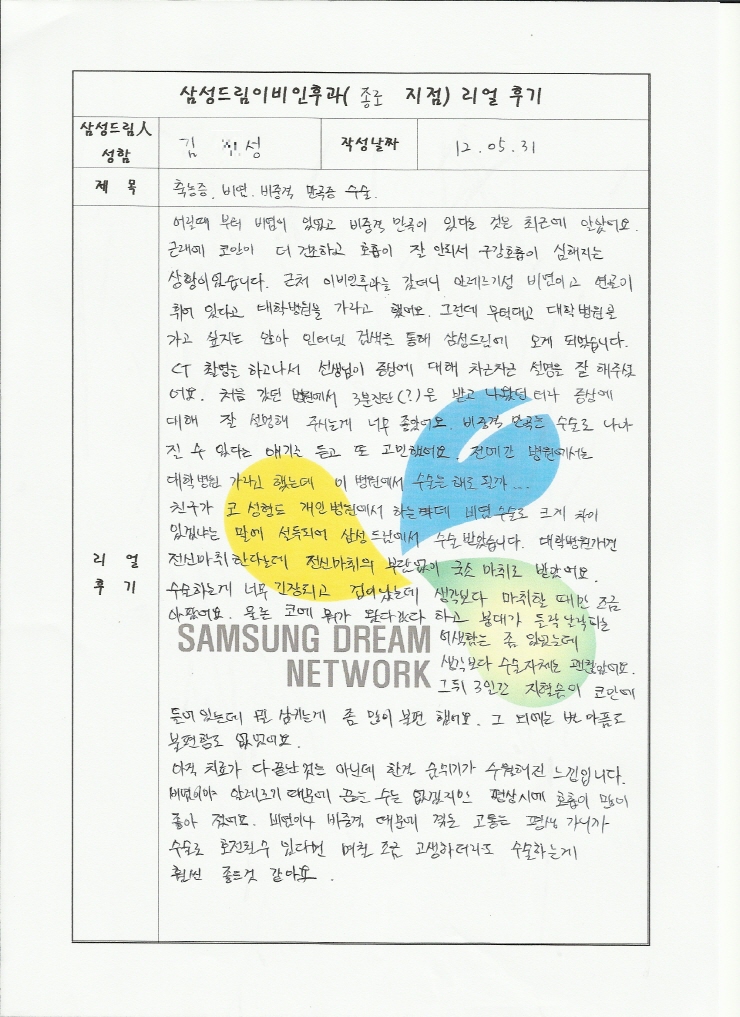 삼성드림이비인후과( 종로 지점) 리얼 후기
삼성드림人 성함
김 성
작성날짜
12.05.31
제 목
축농증. 비염. 비중격 만곡증 수술.
리 얼 후 기
어릴때 부터 비염이 있었고 비중격 만곡이 있다는 것은 최근에 알았어요.
근래에 코안이 더 건조하고 호흡이 잘 안되서 구강호흡이 심해지는
상황이었습니다. 근처 이비인후과를 갔더니 알레르기성 비염이고 연골이
휘어 있다고 대학병원을 가라고 했어요. 그런데 무턱대고 대학병원을
가고 싶지는 않아 인터넷 검색을 통해 삼성드림에 오게 되었습니다.
CT 촬영을 하고나서 선생님이 증상에 대해 차근차근 설명을 잘 해주셨
어요. 처음 갔던 병원에서 3분진단(?)을 받고 나왔던 터라 증상에
대해 잘 설명해 주시는게 너무 좋았어요. 비중격 만곡는 수술로 나아
질 수 있다는 얘기를 듣고 또 고민했어요. 전에간 병원에서는
대학병원 가라고 했는데 이 병원에서 수술은 해도 될까...
친구가 코 성형도 개인병원에서 하는 판데 비염수술로 크게 차이
있겠냐는 말에 설득되어 삼성드림에서 수술 받았습니다. 대학병원가면
전신마취한다는데 전신마취의 부담없이 국소 마취로 받았어요.
수술하는게 너무 긴장되고 겁이났는데 생각보다 마취할 때만 조금
아팠어요. 물론 코에 뭐가 왔다갔다 하고 붕대가 들락날락하는
어색함는 좀 있었는데
생각보다 수술자체는 괜찮았어요.
그뒤 3일간 지혈솜이 코안에
들어있는데 삼키는게 좀 많이 불편 했어요. 그 뒤에는 별 아픔도
불편함도 없었어요.
아직 치료가 다 끝난 것은 아닌데 한결 숨쉬기가 수월해진 느낌입니다.
비염이야 알레르기 때문에 끊는 수는 없겠지만 평상시에 호흡이 많이
좋아 졌어요. 비염이나 비중격 때문에 겪는 고통은 평생 가니까
수술로 호전될수 있다면 며칠 조금 고생하더라도 수술하는게
훨씬 좋은것 같아요.
SAMSUNG DREAM
NETWORK